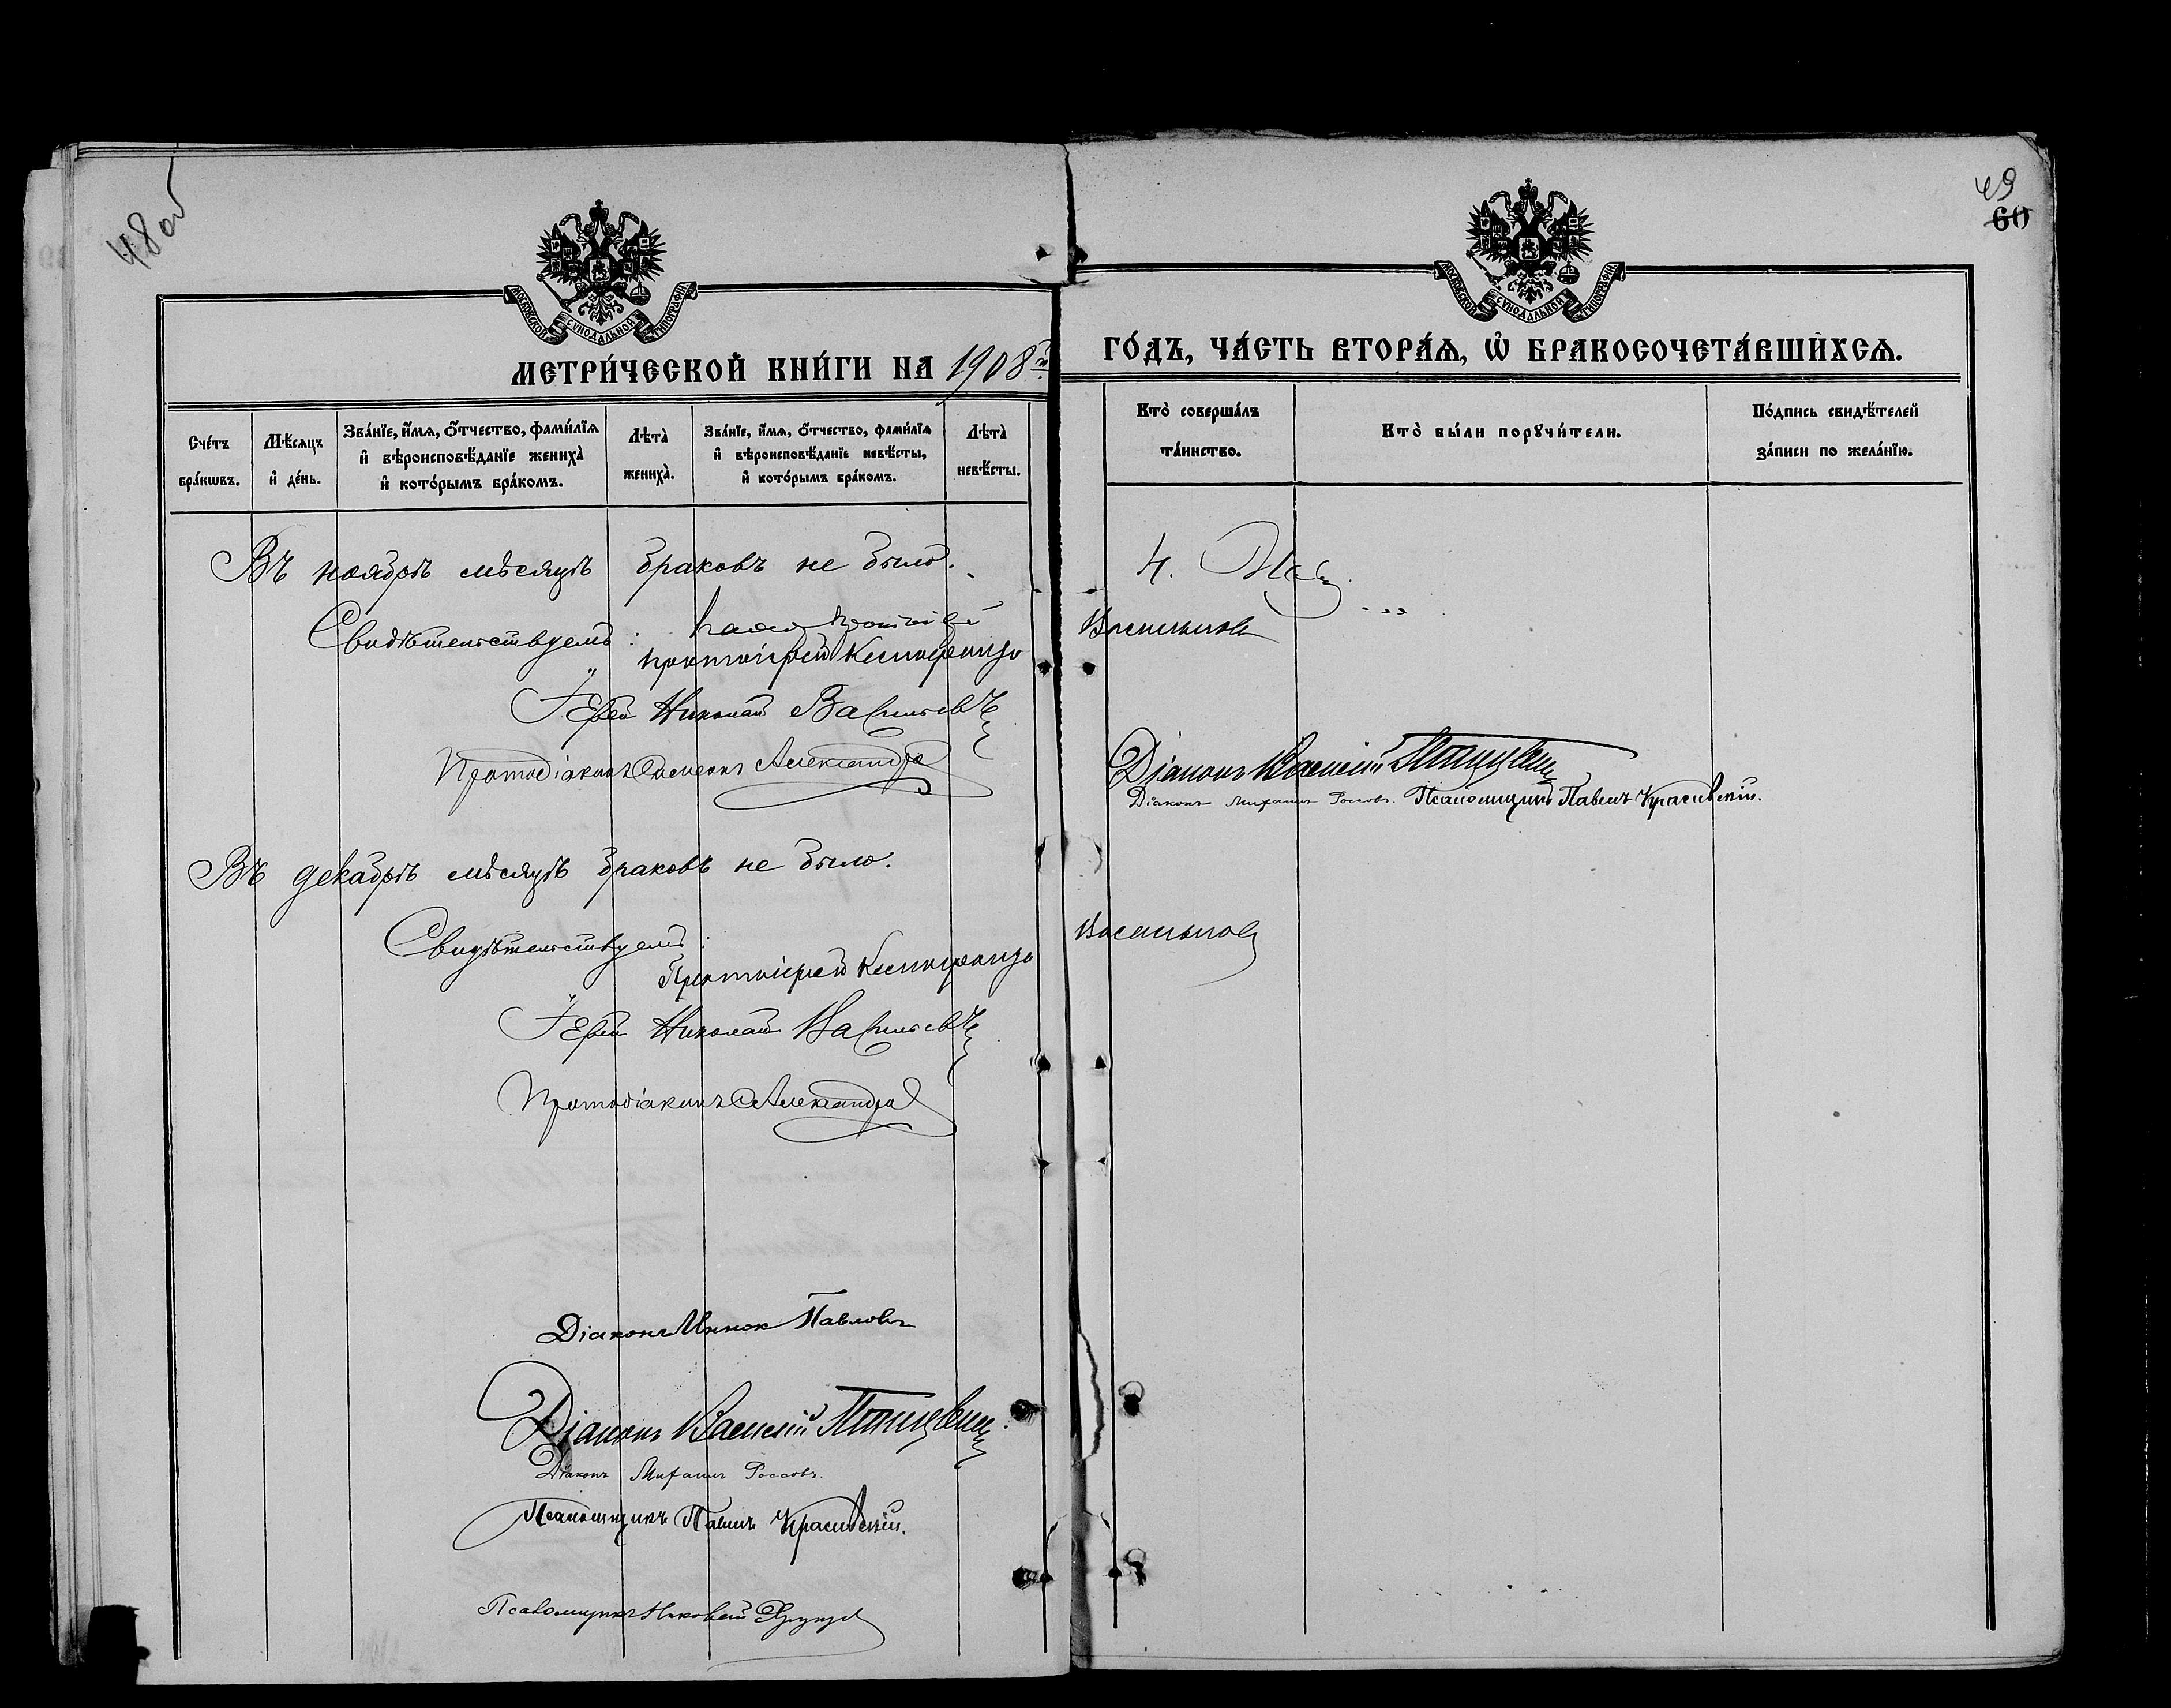 48 об
49
60
МОСКОВСКОЙ СѴНОДАЛЬНОЙ ТИПОГРАФІИ
МОСКОВСКОЙ СѴНОДАЛЬНОЙ ТИПОГРАФІИ
МЕТРИ́ЧЕСКОЙ КНИ́ГИ НА 1908 й
ГО́ДЪ, ЧА́СТЬ ВТОРА́Ѧ, Ѡ БРАКОСОЧЕТА́ВШИХСѦ.
Сче́тъ бра́кѡвъ.
Мѣ́сѧцъ и҆ де́нь.
Зва́нїе, и҆́мѧ, ѻ҆́тчество, фами́лїѧ и҆ вѣроисповѣ́данїе жениха̀ и҆ кото́рымъ бра́комъ.
Лѣта̀ жениха̀.
Зва́нїе, и҆́мѧ, ѻ҆́тчество, фами́лїѧ и҆ вѣроисповѣ́данїе невѣ́сты, и҆ кото́рымъ бра́комъ.
Лѣта̀ невѣ́сты.
Кто̀ соверша́лъ та́инство.
Кто̀ бы́ли порꙋчи́тели.
По́дпись свидѣ́телей за́писи по жела́нїю.
Въ ноябрѣ мѣсяцѣ браковъ не было.
Свидѣтельствуемъ:
протоіерей
Іерей Николай Васильевъ
Протодіаконъ Александров
Діаконъ Василій
Діаконъ Михаилъ Россовъ. Псаломщикъ Павелъ
Въ декабрѣ мѣсяцѣ браковъ не было.
Свидѣтельствуемъ:
Протоіерей
Іерей Николай Васильевъ
Протодіаконъ Александров
Діаконъ Павловъ
Діаконъ Василій
Діаконъ Михаилъ Россовъ.
Псаломщикъ Павелъ
Псаломщикъ